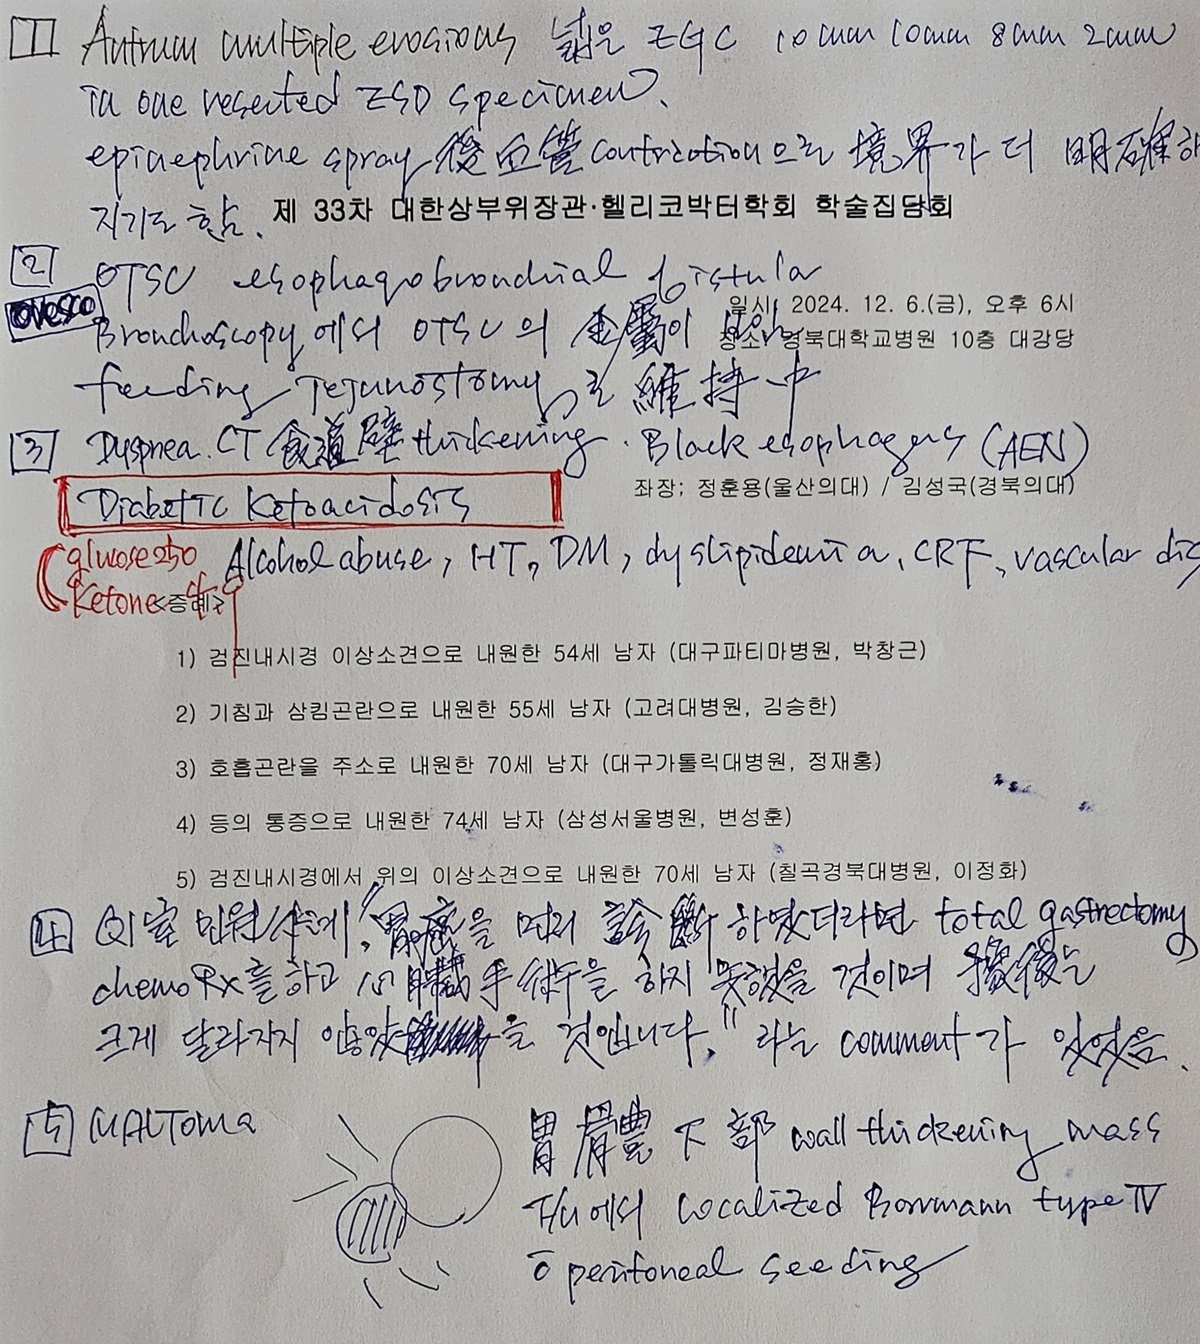 1 Antrum multiple erosions 넓은 EGC 10mm 10mm 8mm 2mm
in one resected ESD specimen.
epinephrine spray 後 血管 contriction으로 境界가 더 明確하
지기도 함.
제 33차 대한상부위장관·헬리코박터학회 학술집담회
2 OTSC esophagobronchial fistula
ovesco
일시: 2024. 12. 6.(금), 오후 6시
Bronchoscopy에서 OTSC의 金屬이 보임
장소: 경북대학교병원 10층 대강당
feeding jejunostomy로 維持中
3 Dyspnea. CT 食道壁 thickening. Black esophagus (AEN)
Diabetic Ketoacidosis
좌장; 정훈용(울산의대) / 김성국(경북의대)
glucose 250 Alcohol abuse, HT, DM, dyslipidemia, CRF, vascular dis
Ketone 4
<증례>
1) 검진내시경 이상소견으로 내원한 54세 남자 (대구파티마병원, 박창근)
2) 기침과 삼킴곤란으로 내원한 55세 남자 (고려대병원, 김승한)
3) 호흡곤란을 주소로 내원한 70세 남자 (대구가톨릭대병원, 정재홍)
4) 등의 통증으로 내원한 74세 남자 (삼성서울병원, 변성훈)
5) 검진내시경에서 위의 이상소견으로 내원한 70세 남자 (칠곡경북대병원, 이정화)
4 QI室 민원사례. "胃癌을 먼저 診斷 하였더라면 total gastrectomy
chemoRx를 하고 心臟手術을 하지 못했을 것이며 豫後는
크게 달라지지 않았을 것입니다." 라는 comment가 있었음.
5 MALToma
胃 體 下部 wall thickening mass
F/U에서 localized Borrmann type IV
c̄ peritoneal seeding